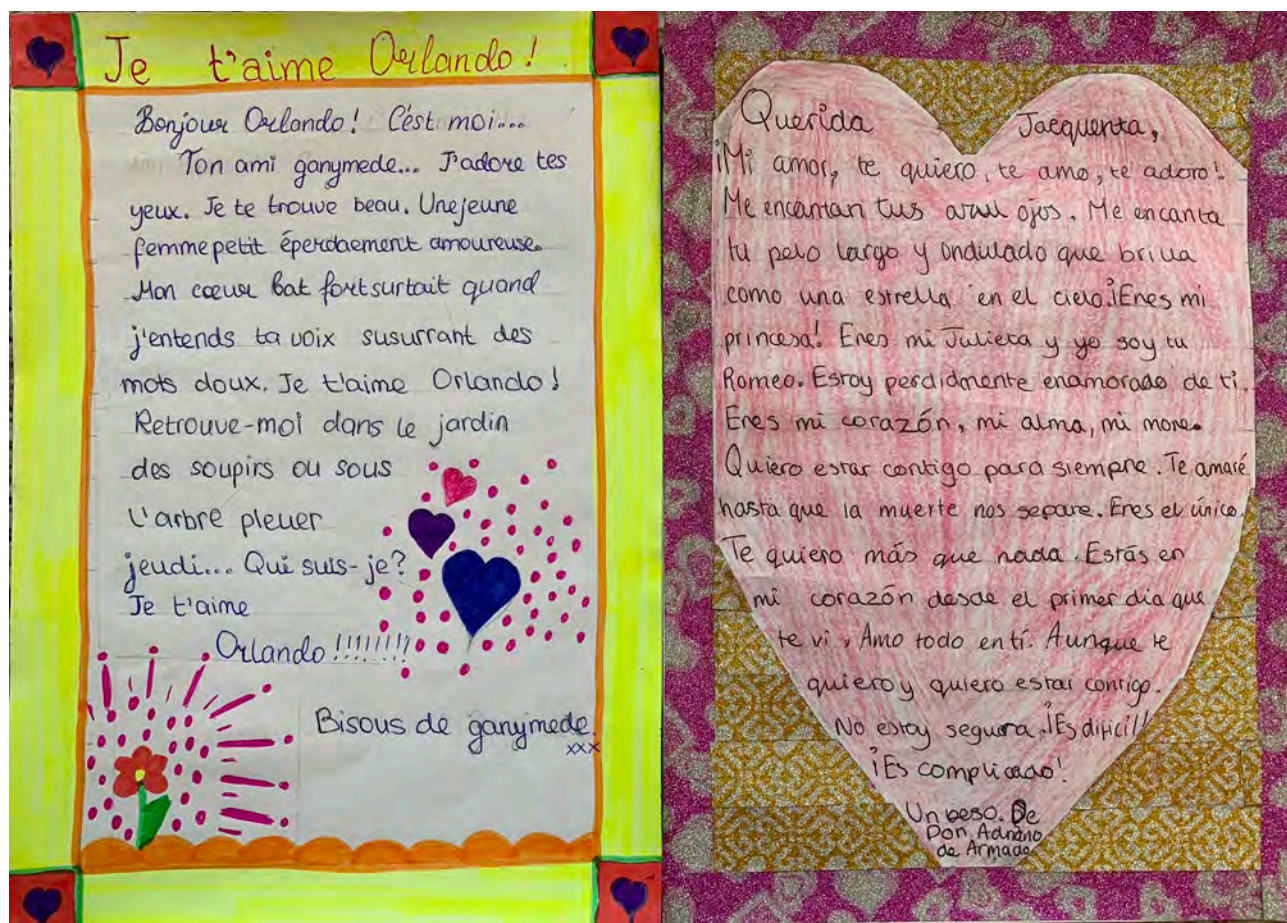 Je t'aime Orlando!
Bonjour Orlando! C'ést moi...
Ton ami ganymede... J'adore tes
yeux. Je te trouve beau. Unejeune
femmepetit éperdaement amoureuse.
Mon cœur bat fortsurtait quand
j'entends ta voix susurrant des
mots doux. Je t'aime Orlando!
Retrouve-moi dans le jardin
des soupirs ou sous
l'arbre pleuer
jeudi... Qui suis-je?
Je t'aime
Orlando!!!!!!!?
Bisous de ganymede.
xxx
Querida Jacquenta,
¡Mi amor, te quiero, te amo, te adoro!
Me encantan tus azul ojos. Me encanta
tu pelo largo y ondulado que brilla
como una estrella en el cielo. ¡Eres mi
princesa! Eres mi Julieta y yo soy tu
Romeo. Estoy perdidmente enamorado de ti.
Eres mi corazón, mi alma, mi more.
Quiero estar contigo para siempre. Te amaré
hasta que la muerte nos separe. Eres el único.
Te quiero más que nada. Estás en
mi corazón desde el primer dia que
te vi. Amo todo en tí. Aunque te
quiero y quiero estar contigo.
No estoy segura. ¡Es dificil!
¡Es complicado!
Un beso. De
Don Adriano
de Armado